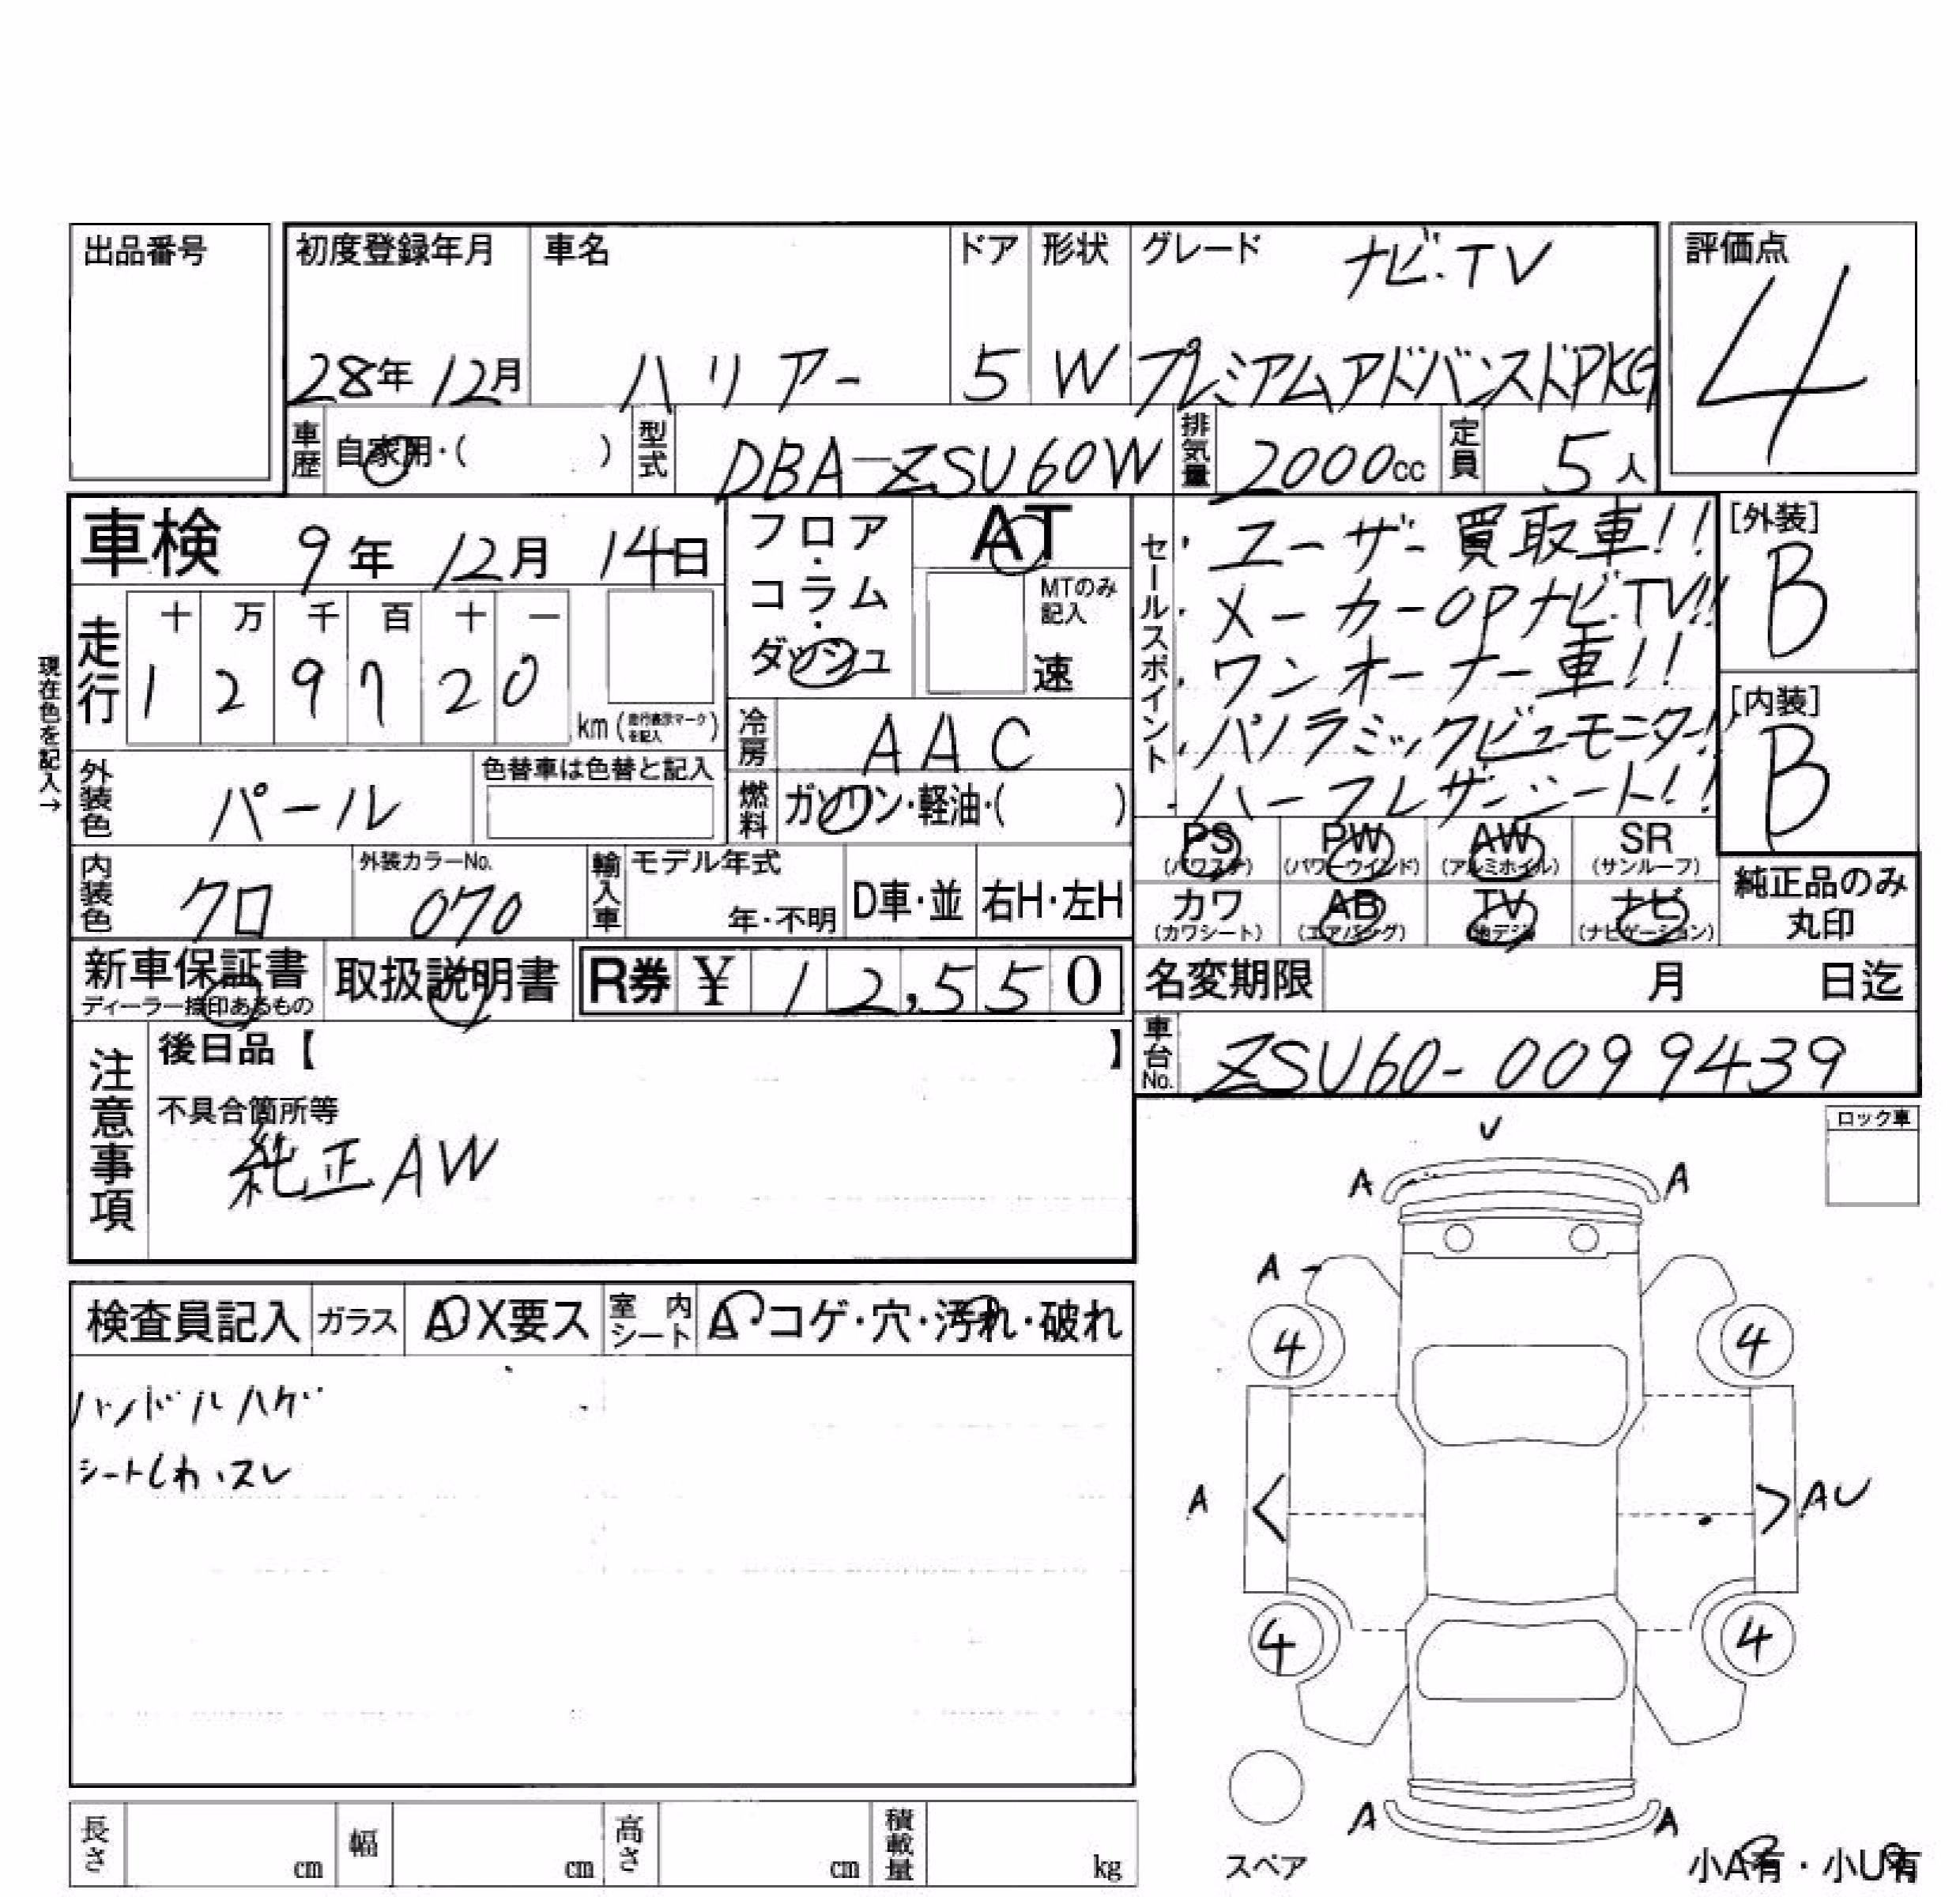 出品番号
初度登録年月 車名 ドア 形状 グレード ナビ・TV 評価点
28年 12月 ハリアー 5 W プレミアムアドバンスドPKG 4
車歴 自家用・( ) 型式 DBA-ZSU60W 排気量 2000cc 定員 5人
車検 9年 12月 14日
フロア・コラム・ダッシュ
AT
MTのみ記入
速
セールスポイント
・ユーザー買取車!!
・メーカーOPナビ.TV!!
・ワンオーナー車!!
・パノラミックビューモニター!
・ハーフレザーシート!!
[外装]
B
[内装]
B
現在色を記入→
走行 十 万 千 百 十 一
1 2 9 7 2 0
km (走行表示マークを記入)
冷房 AAC
外装色 パール 色替車は色替と記入
燃料 ガソリン・軽油・( )
PS (パワステ) PW (パワーウインド) AW (アルミホイル) SR (サンルーフ)
カワ (カワシート) AB (エアバッグ) TV (地デジ) ナビ (ナビゲーション)
純正品のみ丸印
内装色 クロ 外装カラーNo. 070 輸入車 モデル年式 年・不明 D車・並 右H・左H
新車保証書 ディーラー捺印あるもの 取扱説明書 R券 ¥ 12,550
名変期限 月 日迄
車台No. ZSU60-0099439
注意事項
後日品【 】
不具合箇所等
純正AW
ロック車
検査員記入 ガラス A・X要ス 室内シート A・コゲ・穴・汚れ・破れ
ハンドルハゲ
シートしわ、スレ
U
A A
A
4 4
A < > AU
4 4
A A
スペア
小A有・小U有
長さ cm 幅 cm 高さ cm 積載量 kg